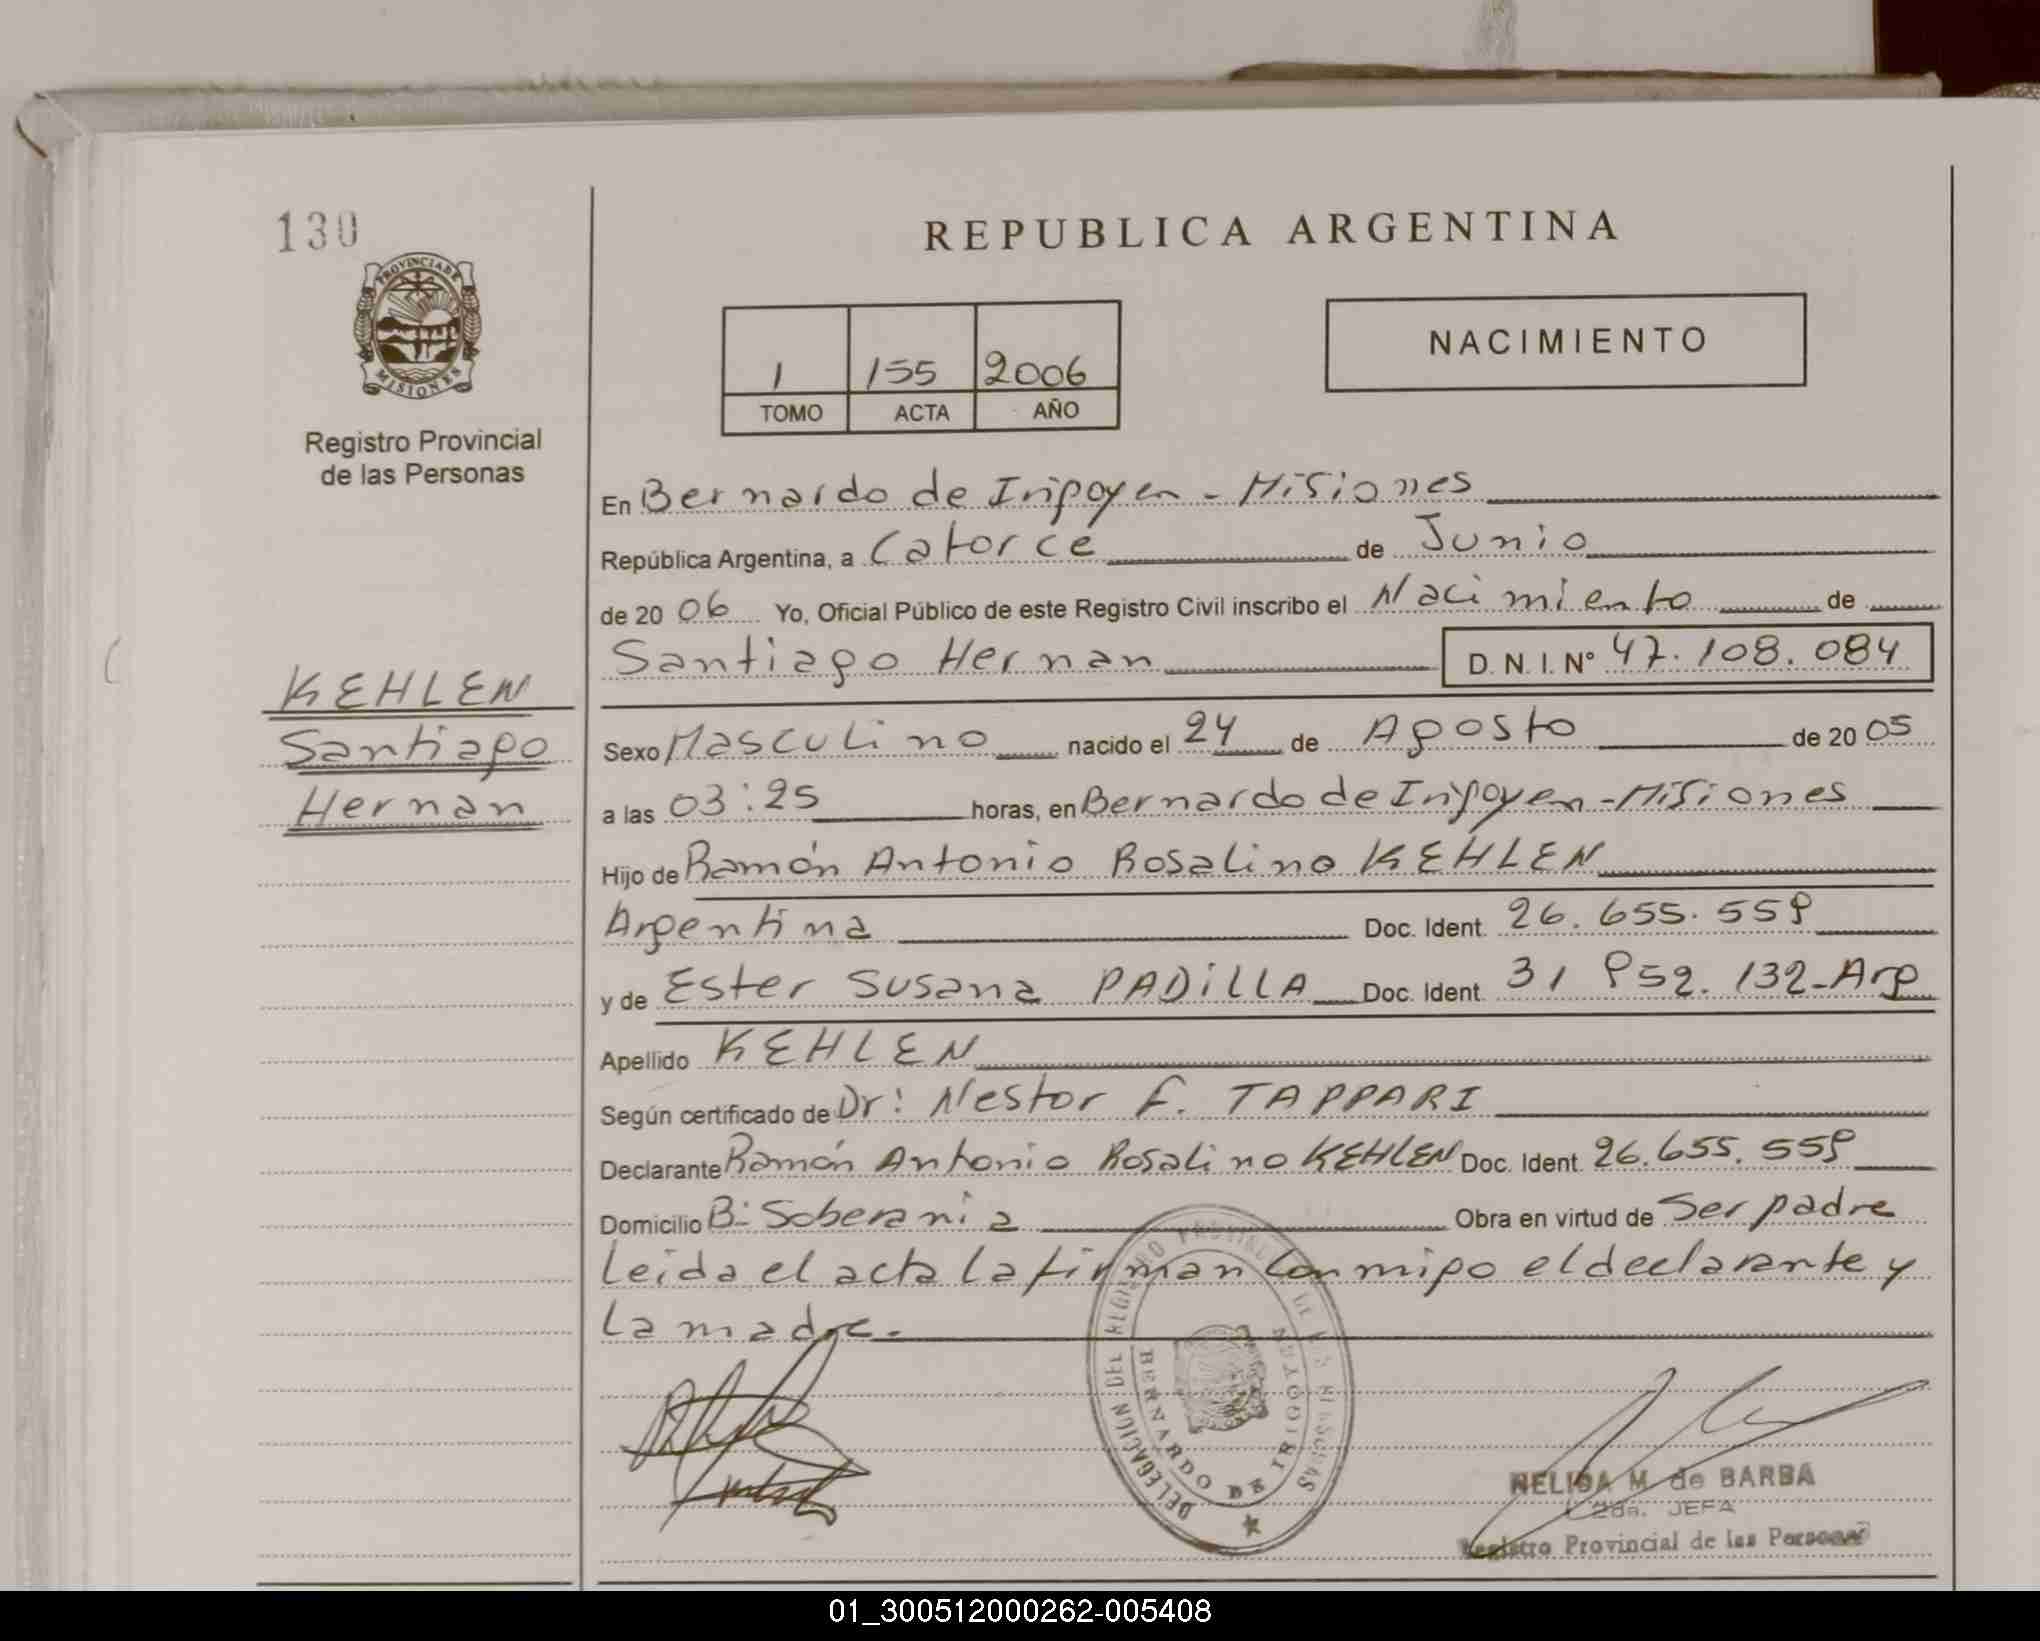 130
PROVINCIA DE
MISIONES
Registro Provincial
de las Personas
KEHLEN
Santiago
Hernan
REPUBLICA ARGENTINA
1 155 2006
TOMO ACTA AÑO
NACIMIENTO
En Bernardo de Irigoyen - Misiones
República Argentina, a Catorce de Junio
de 20 06 Yo, Oficial Público de este Registro Civil inscribo el Nacimiento de
Santiago Hernan D. N. I. N° 47.108.084
Sexo Masculino nacido el 24 de Agosto de 20 05
a las 03:25 horas, en Bernardo de Irigoyen - Misiones
Hijo de Ramón Antonio Rosalino KEHLEN
Argentina Doc. Ident. 26.655.559
y de Ester Susana PADILLA Doc. Ident. 31 952.132-Arg
Apellido KEHLEN
Según certificado de Dr: Nestor F. TAPPARI
Declarante Ramón Antonio Rosalino KEHLEN Doc. Ident. 26.655.559
Domicilio B: Soberania Obra en virtud de Ser padre
Leida el acta la firman Conmigo el declarante y
La madre.
DELEGACION DEL REGISTRO PROVINCIAL DE LAS PERSONAS
BERNARDO DE IRIGOYEN
NELIDA M. de BARBA
2da. JEFA
Registro Provincial de las Personas
01_300512000262-005408